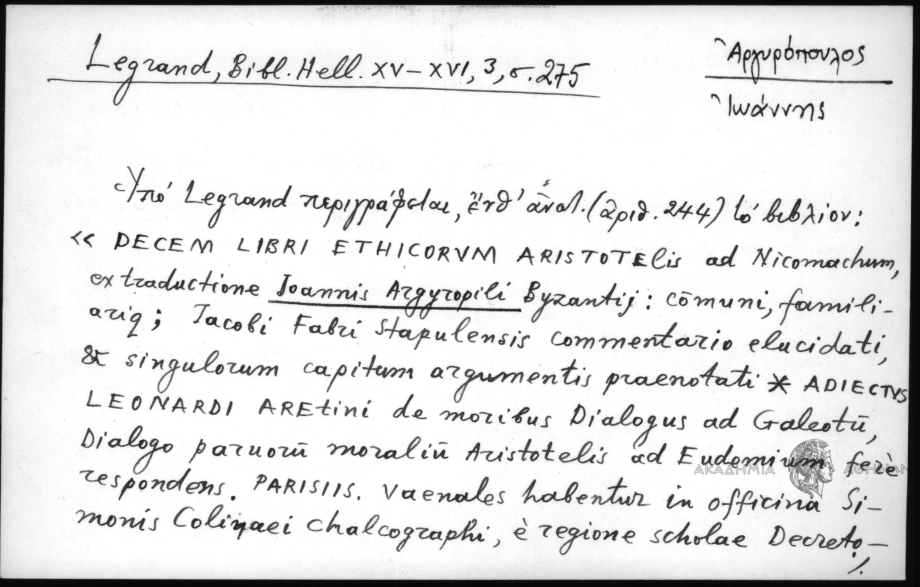 Legrand, Bibl. Hell. XV–XVI, 3, σ. 275
Ἀργυρόπουλος
Ἰωάννης
Ὑπό Legrand περιγράφεται, ἔνθ' ἀνωτ. (ἀριθ. 244) τό βιβλίον:
« DECEM LIBRI ETHICORVM ARISTOTElis ad Nicomachum,
ex traductione Joannis Argyropili Byzantij: cōmuni, famili-
ariq; Jacobi Fabri Stapulensis commentario elucidati,
& singulorum capitum argumentis praenotati * ADIECTVS
LEONARDI AREtini de moribus Dialogus ad Galeotū,
Dialogo paruorū moraliū Aristotelis ad Eudemium ferè
respondens. PARISIIS. Vaenales habentur in officina Si-
monis Colinaei chalcographi, è regione scholae Decreto-
./.
ΑΚΑΔΗΜΙΑ ΑΘΗΝΩΝ